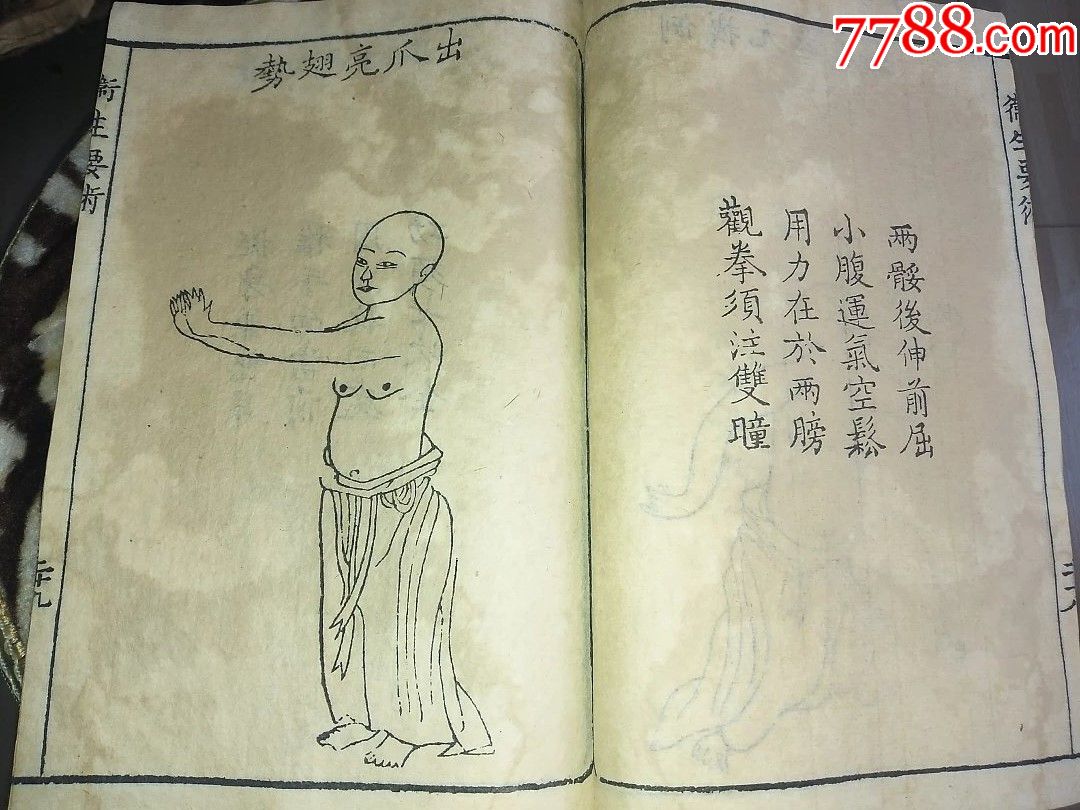 7788.com
衞生要術
兩骽後伸前屈
小腹運氣空鬆
用力在於兩膀
觀拳須注雙瞳
二十八
出爪亮翅勢
衞生要術
二十九